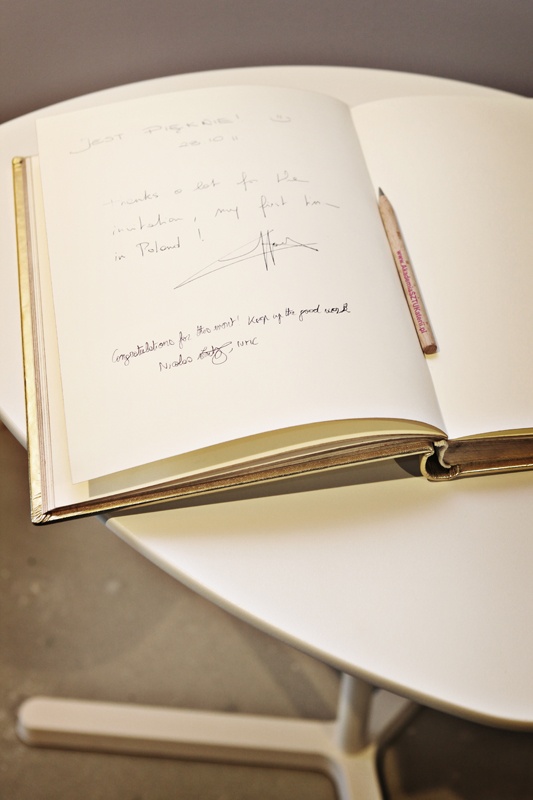 JEST PIĘKNIE!
28.10.11
Thanks a lot for the
invitation, my first time
in Poland !
Congratulations for this event! Keep up the good work
Nicolas